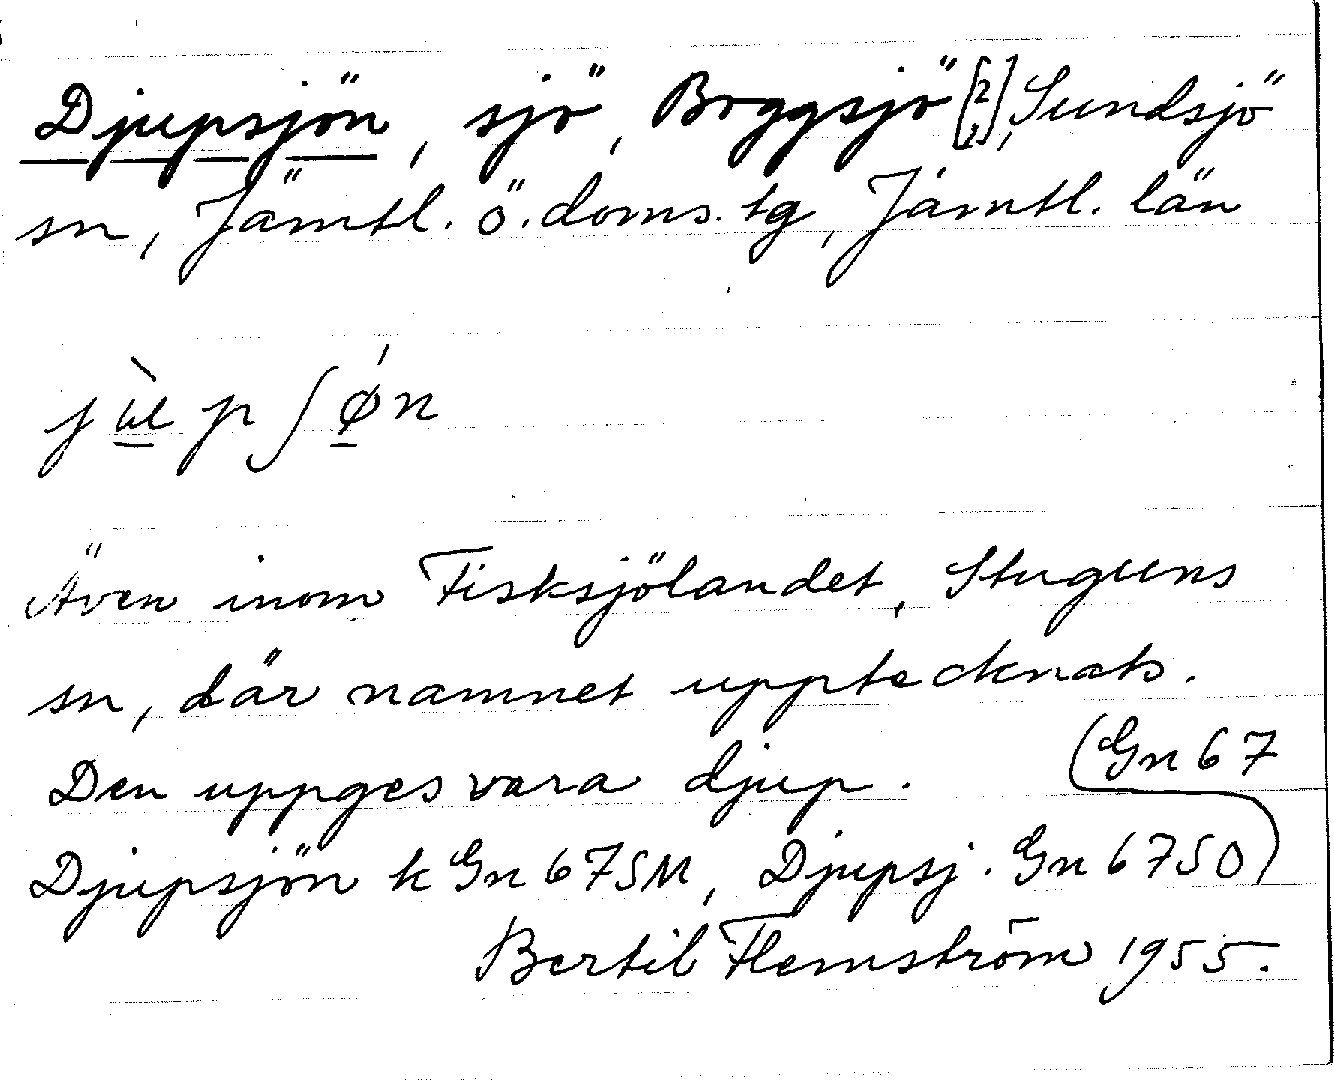 Djupsjön, sjö, Boggsjö [2], Sundsjö
sn, Jämtl. ö. doms. tg, Jämtl. län
jùpʃǿn
Även inom Fisksjölandet, Stuguns
sn, där namnet upptecknats.
Den uppges vara djup. (Gn 67
Djupsjön k Gn 67 SM, Djupsj. Gn 67 SO)
Bertil Flemström 1955.